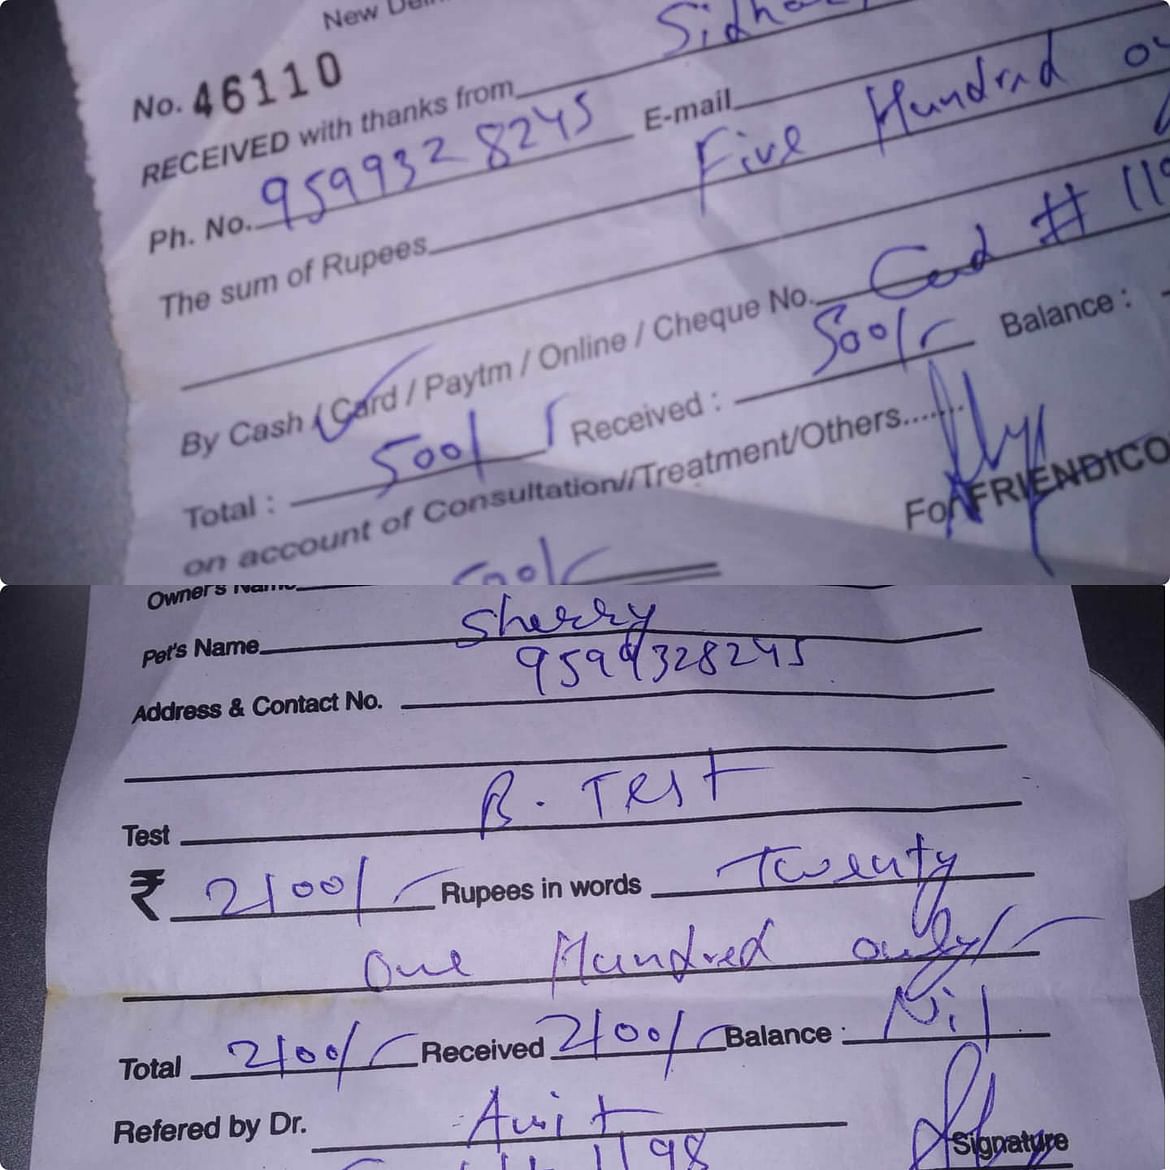 New Delhi
No. 46110
RECEIVED with thanks from
Ph. No. 9599328245 E-mail
The sum of Rupees Five Hundred
By Cash / Card / Paytm / Online / Cheque No. Card # 119
Total : 500/- Received : 500/- Balance :
on account of Consultation//Treatment/Others.......
For FRIENDICO
500/-
Owner's Name
Pet's Name Sherry
9599328245
Address & Contact No.
Test B. Test
₹ 2100/- Rupees in words Twenty
One Hundred only/-
Total 2100/- Received 2100/- Balance : Nil
Refered by Dr. Amit
1198
Signature